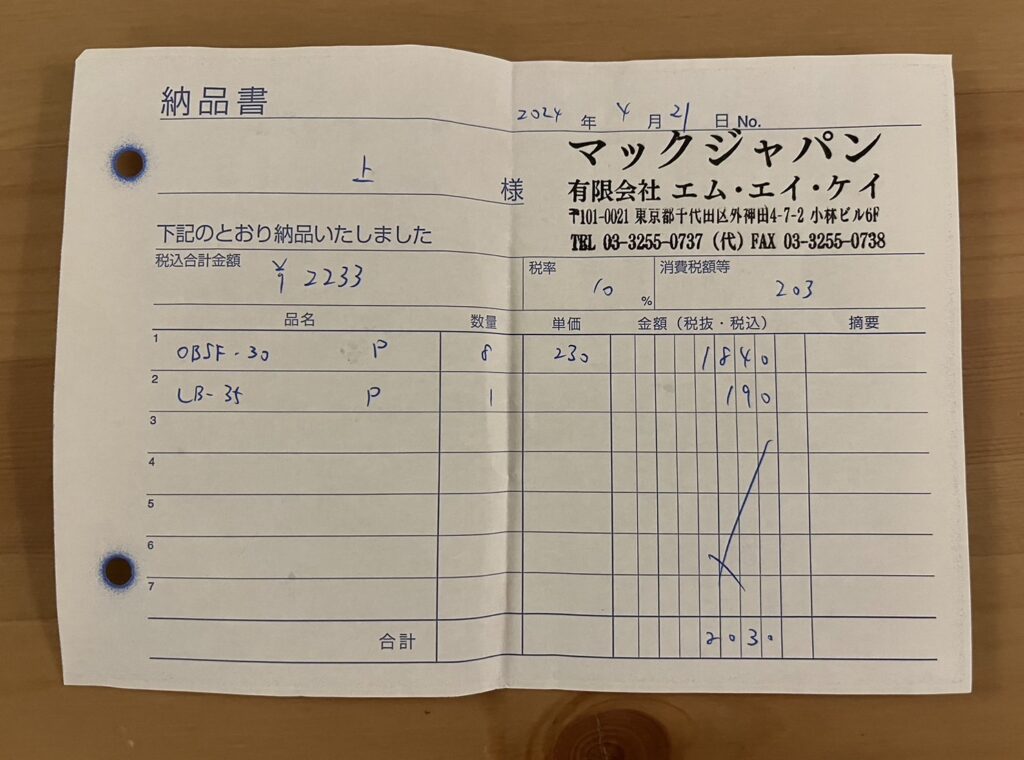 納品書
2024 年 4 月 21 日 No.
上 様
マックジャパン
有限会社 エム・エイ・ケイ
〒101-0021 東京都千代田区外神田4-7-2 小林ビル6F
TEL 03-3255-0737 (代) FAX 03-3255-0738
下記のとおり納品いたしました
税込合計金額 ¥2233 税率 10 % 消費税額等 203
品名 数量 単価 金額（税抜・税込） 摘要
1 OBSF-30 P 8 230 1840
2 LB-35 P 1 190
3
4
5
6
7
合計 2030